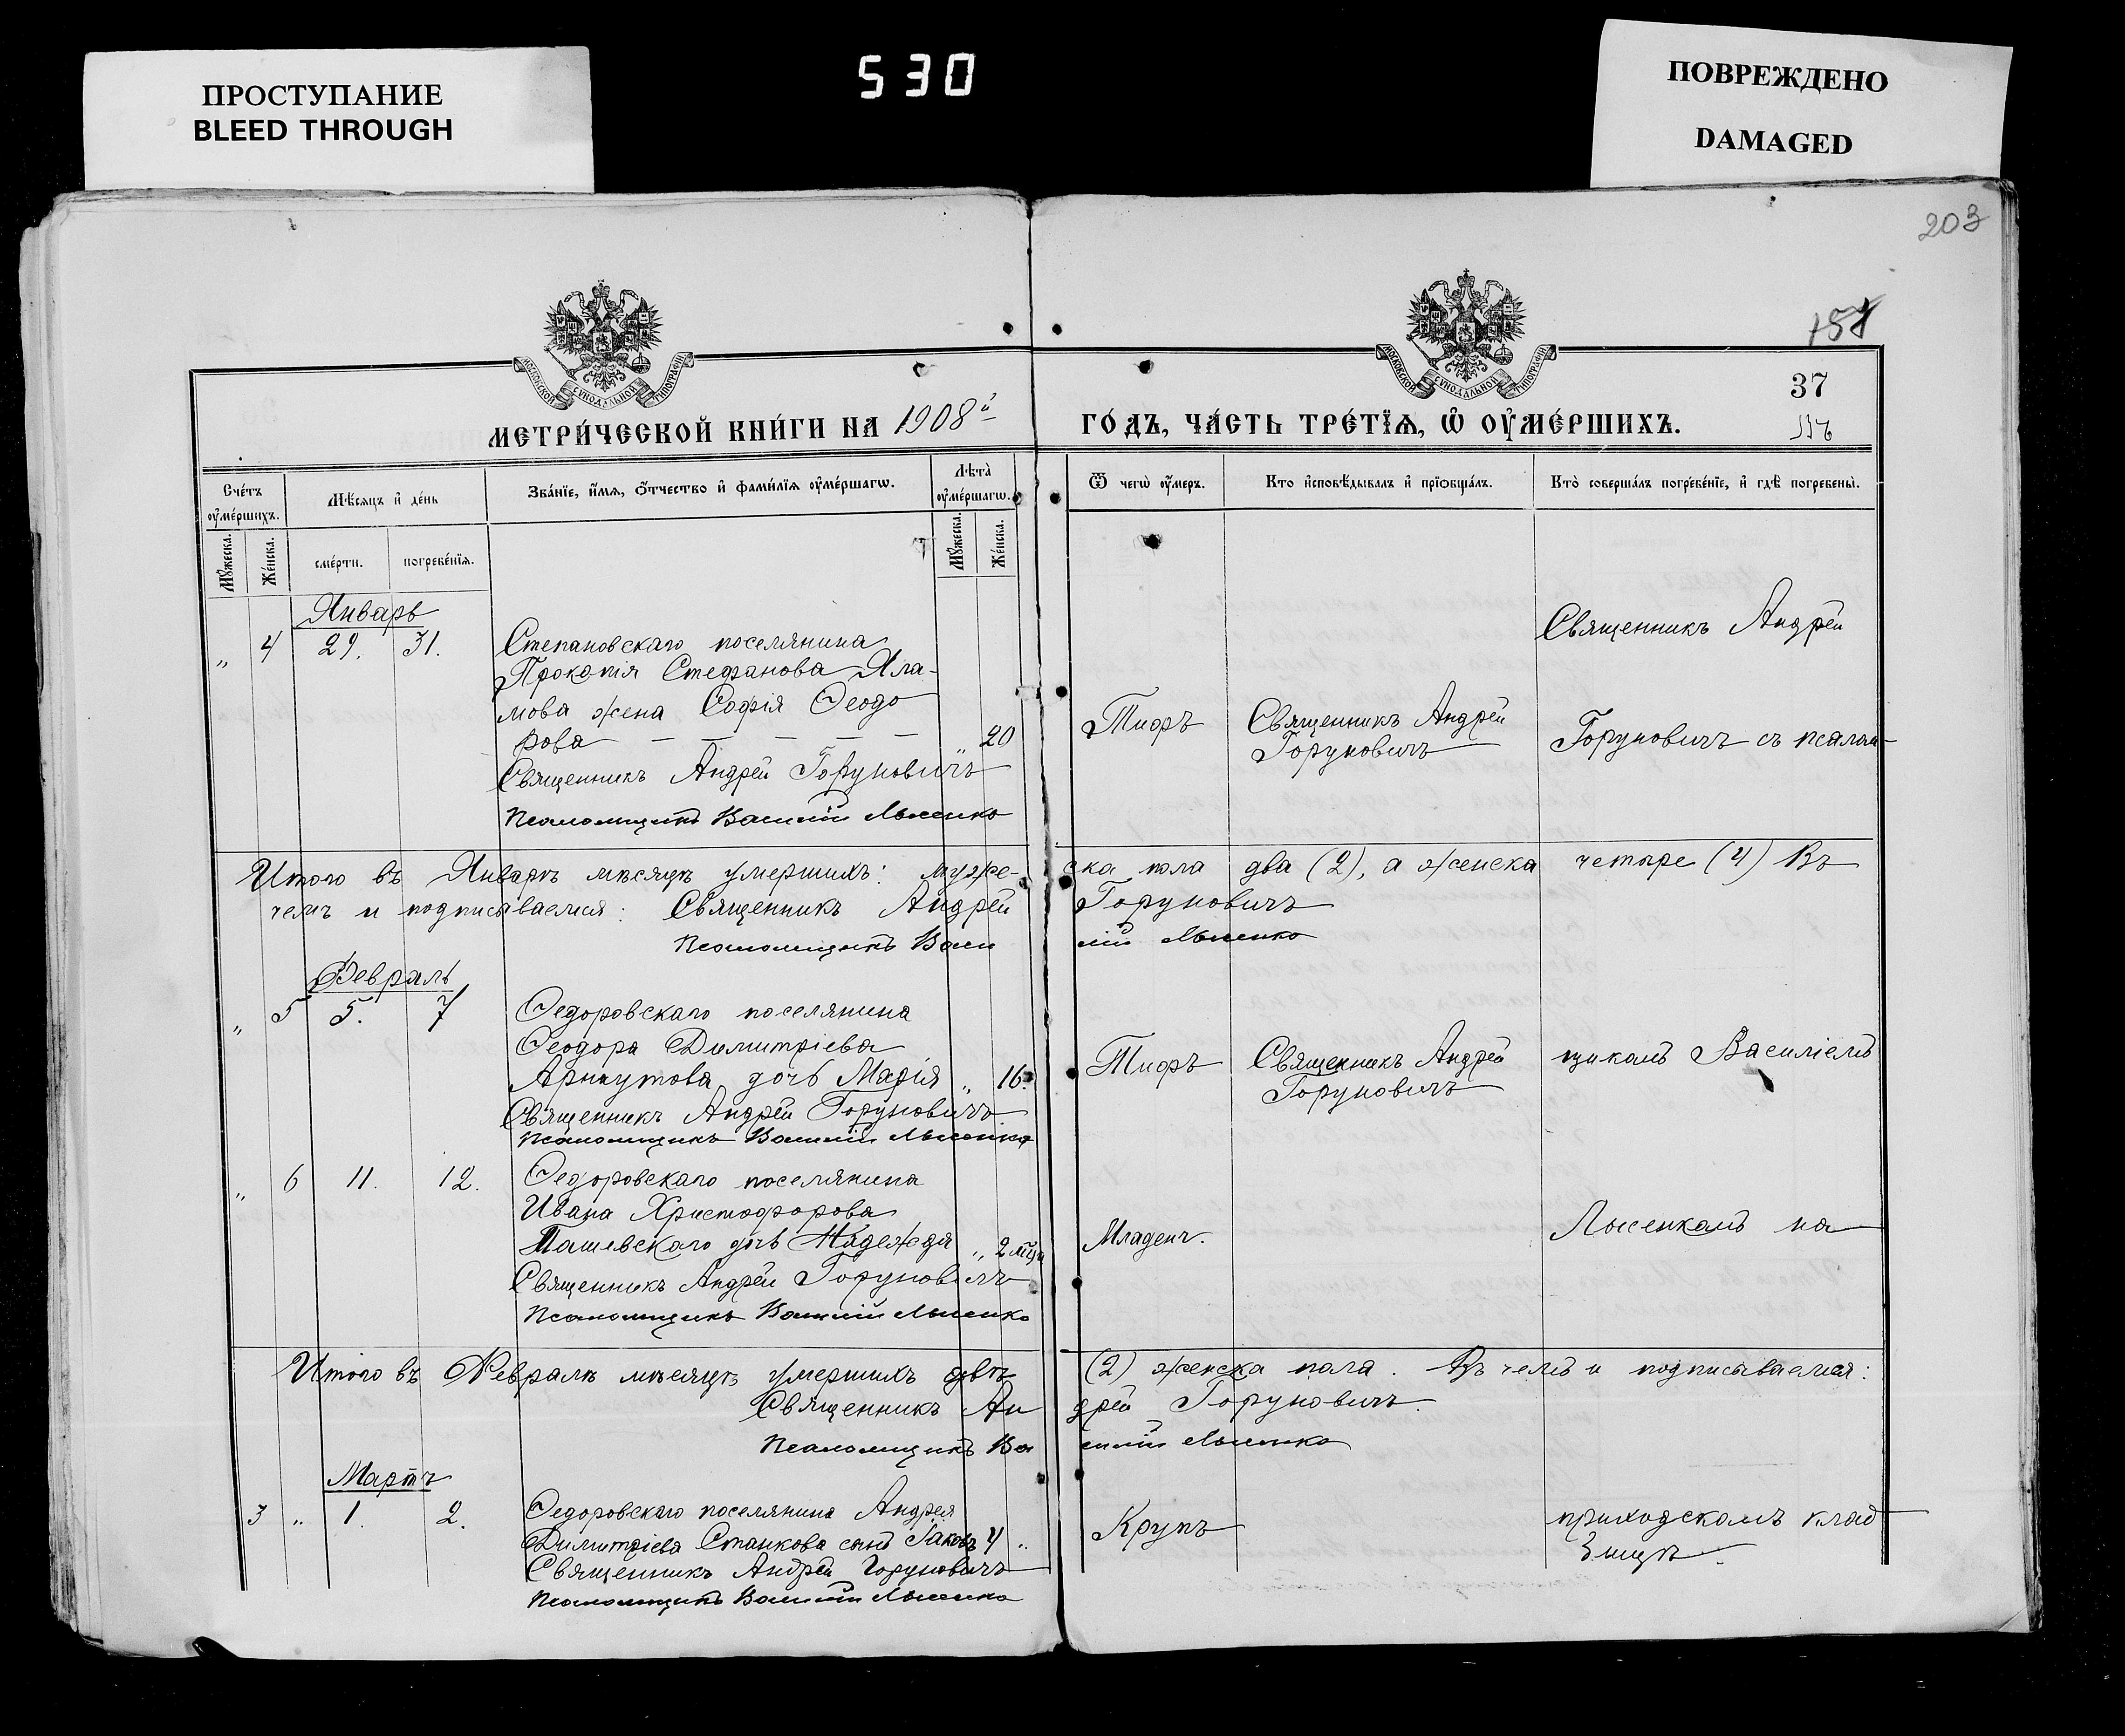 ПРОСТУПАНИЕ
BLEED THROUGH
530
ПОВРЕЖДЕНО
DAMAGED
203
37
МОСКОВСКОЙ СѴНОДАЛЬНОЙ ТИПОГРАФІИ
МОСКОВСКОЙ СѴНОДАЛЬНОЙ ТИПОГРАФІИ
МЕТРИ́ЧЕСКОЙ КНИ́ГИ НА 1908й
ГО́ДЪ, ЧА́СТЬ ТРЕ́ТЇѦ, Ѡ҆ ОУ҆МЕ́РШИХЪ.
Сче́тъ оу҆ме́ршихъ.
Мѣ́сѧцъ и҆ де́нь
Зва́нїе, и҆́мѧ, ѻ҆́тчество и҆ фами́лїѧ оу҆ме́ршагѡ.
Лѣ́та оу҆ме́ршагѡ.
Ѿ чегѡ̀ оу҆́меръ.
Кто и҆сповѣ́дывалъ и҆ прїѡбща́лъ.
Кто̀ соверша́лъ погребе́нїе, и҆ гдѣ̀ погребены̀.
Мꙋ́жеска.
Же́нска.
сме́рти.
погребе́нїѧ.
Мꙋ́жеска.
Же́нска.
Январь
„ 4 29. 31.
Степановскаго поселянина
Прокопія Стефанова Яла-
мова жена Софія Ѳеодо
рова — — — — — „ 20
Священникъ Андрей Горуновичъ
Псаломщикъ Василій Лысенко
Тифъ
Священникъ Андрей
Горуновичъ
Священникъ Андрей
Горуновичъ съ псалом-
Итого въ Январѣ мѣсяцѣ умершихъ: муже-
ска пола два (2), а женска четыре (4) Въ
чемъ и подписываемся: Священникъ Андрей
Горуновичъ
Псаломщикъ Васи
лій Лысенко
Февраль
„ 5 5. 7
Ѳедоровскаго поселянина
Ѳеодора Димитріева
Арнаутова дочь Марія „ 16.
Священникъ Андрей Горуновичъ
Псаломщикъ Василій Лысенко
Тифъ
Священникъ Андрей
Горуновичъ
щикомъ Василіемъ
„ 6 11. 12.
Ѳедоровскаго поселянина
Ивана Христофорова
Ташевскаго дочь Надежда „ 2 мѣца
Священникъ Андрей Горуновичъ
Псаломщикъ Василій Лысенко
Младенч.
Лысенкомъ на
Итого въ Февралѣ мѣсяцѣ умершихъ двѣ
(2) женска пола. Въ чемъ и подписываемся:
Священникъ Ан
дрей Горуновичъ.
Псаломщикъ Ва
силій Лысенко
Мартъ
3 „ 1. 2.
Ѳедоровскаго поселянина Андрея
Димитріева Станкова сынъ Іаковъ 4 „
Священникъ Андрей Горуновичъ
Псаломщикъ Василій Лысенко
Крупъ
приходскомъ клад
бищѣ.